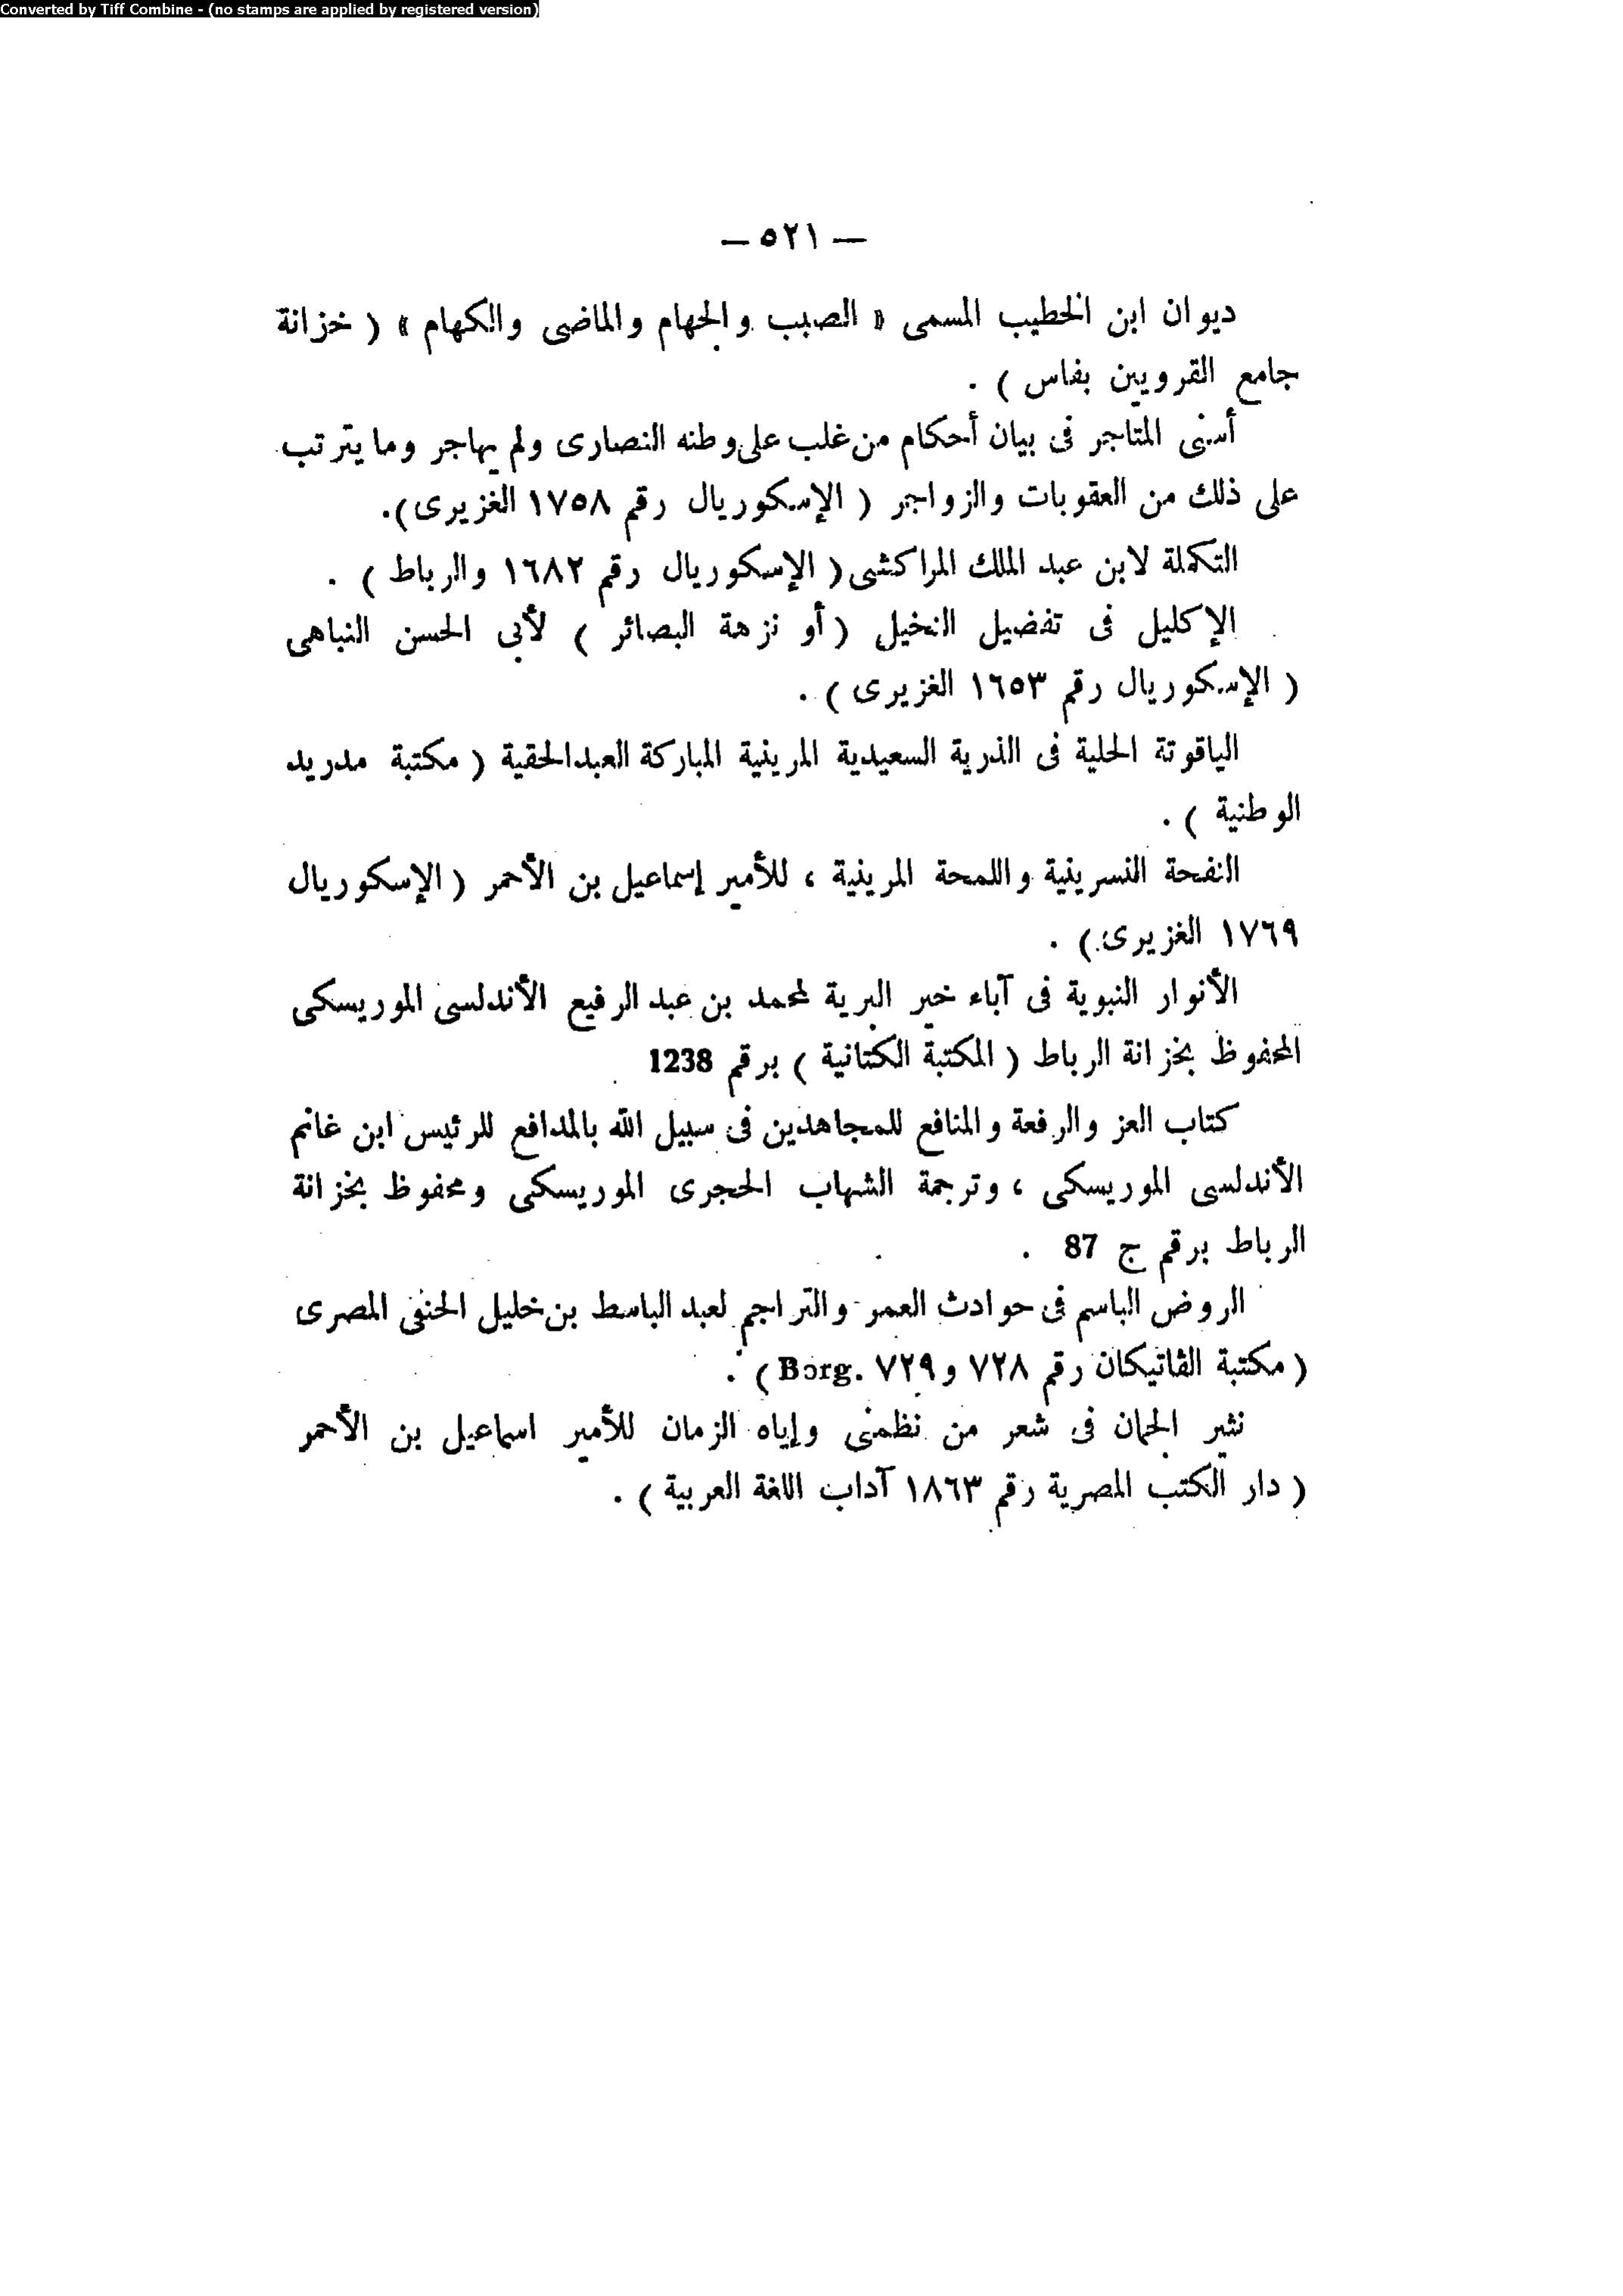 Converted by Tiff Combine - (no stamps are applied by registered version)
— ٥٢١ —
ديوان ابن الخطيب المسمى « الصبب والجهام والماضى والكهام » ( خزانة
جامع القرويين بفاس ) .
أسنى المتاجر فى بيان أحكام من غلب على وطنه النصارى ولم يهاجر وما يترتب
على ذلك من العقوبات والزواجر ( الإسكوريال رقم ١٧٥٨ الغزيرى ).
التكملة لابن عبد الملك المراكشى ( الإسكوريال رقم ١٦٨٢ والرباط ) .
الإكليل فى تفضيل النخيل ( أو نزهة البصائر ) لأبى الحسن النباهى
( الإسكوريال رقم ١٦٥٣ الغزيرى ) .
الياقوتة الحلية فى الذرية السعيدية المرينية المباركة العبدالحقية ( مكتبة مدريد
الوطنية ) .
النفحة النسرينية واللمحة المرينية ، للأمير إسماعيل بن الأحمر ( الإسكوريال
١٧٦٩ الغزيرى ) .
الأنوار النبوية فى آباء خير البرية لمحمد بن عبد الرفيع الأندلسى الموريسكى
المحفوظ بخزانة الرباط ( المكتبة الكتانية ) برقم 1238
كتاب العز والرفعة والمنافع للمجاهدين فى سبيل الله بالمدافع للرئيس ابن غانم
الأندلسى الموريسكى ، وترجمة الشهاب الحجرى الموريسكى ومحفوظ بخزانة
الرباط برقم ج 87 .
الروض الباسم فى حوادث العمر والتراجم لعبد الباسط بن خليل الحنفى المصرى
( مكتبة الڤاتيكان رقم ٧٢٨ و ٧٢٩ Borg. ) .
نثير الجمان فى شعر من نظمنى وإياه الزمان للأمير اسماعيل بن الأحمر
( دار الكتب المصرية رقم ١٨٦٣ آداب اللغة العربية ) .